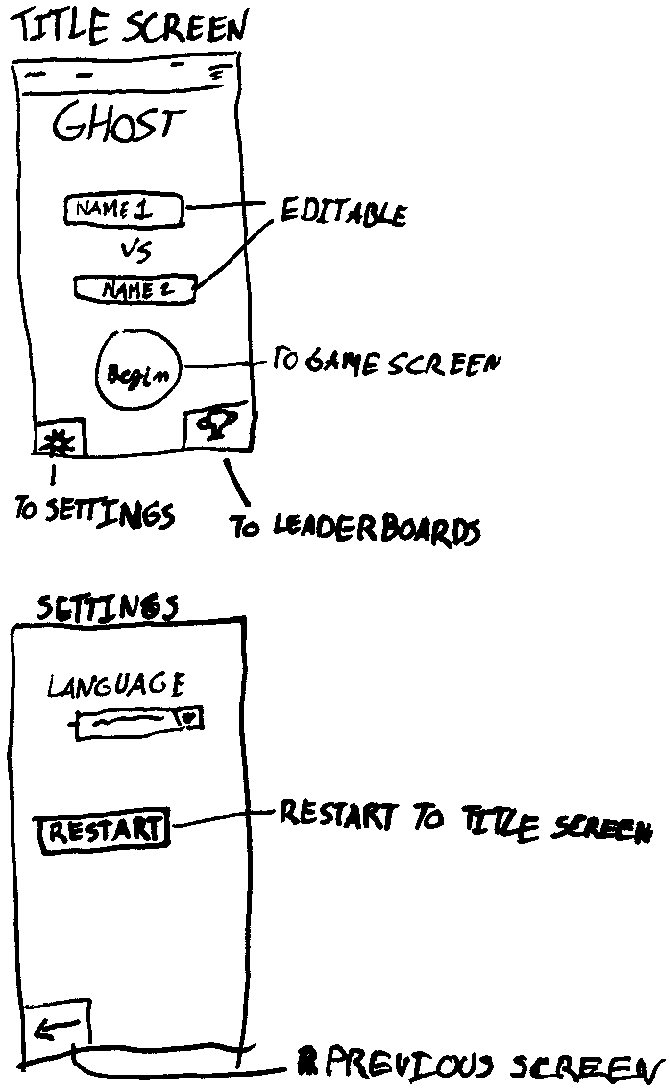 TITLE SCREEN
GHOST
NAME 1
EDITABLE
VS
NAME 2
Begin
TO GAME SCREEN
TO SETTINGS
TO LEADERBOARDS
SETTINGS
LANGUAGE
RESTART
RESTART TO TITLE SCREEN
PREVIOUS SCREEN